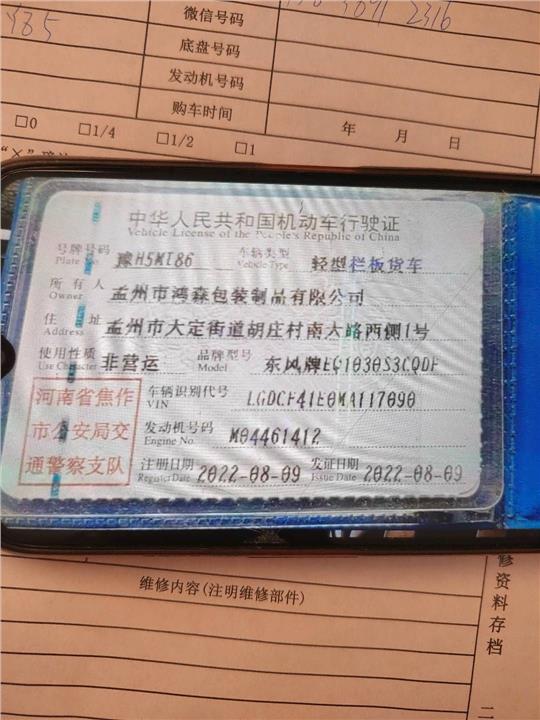 微信号码
底盘号码
发动机号码
购车时间
年 月 日
□0 □1/4 □1/2 □1
中华人民共和国机动车行驶证
Vehicle License of the People's Republic of China
号牌号码 豫H5MT86 车辆类型 轻型栏板货车
Plate No. Vehicle Type
所有人 孟州市鸿森包装制品有限公司
Owner
住址 孟州市大定街道胡庄村南大路西侧1号
Address
使用性质 非营运 品牌型号 东风牌EQ1030S3CQDF
Use Character Model
河南省焦作
市公安局交
通警察支队
车辆识别代号 LGDCF41E0MA117090
VIN
发动机号码 M04461412
Engine No.
注册日期 2022-08-09 发证日期 2022-08-09
Register Date Issue Date
维修内容(注明维修部件)
修资料存档